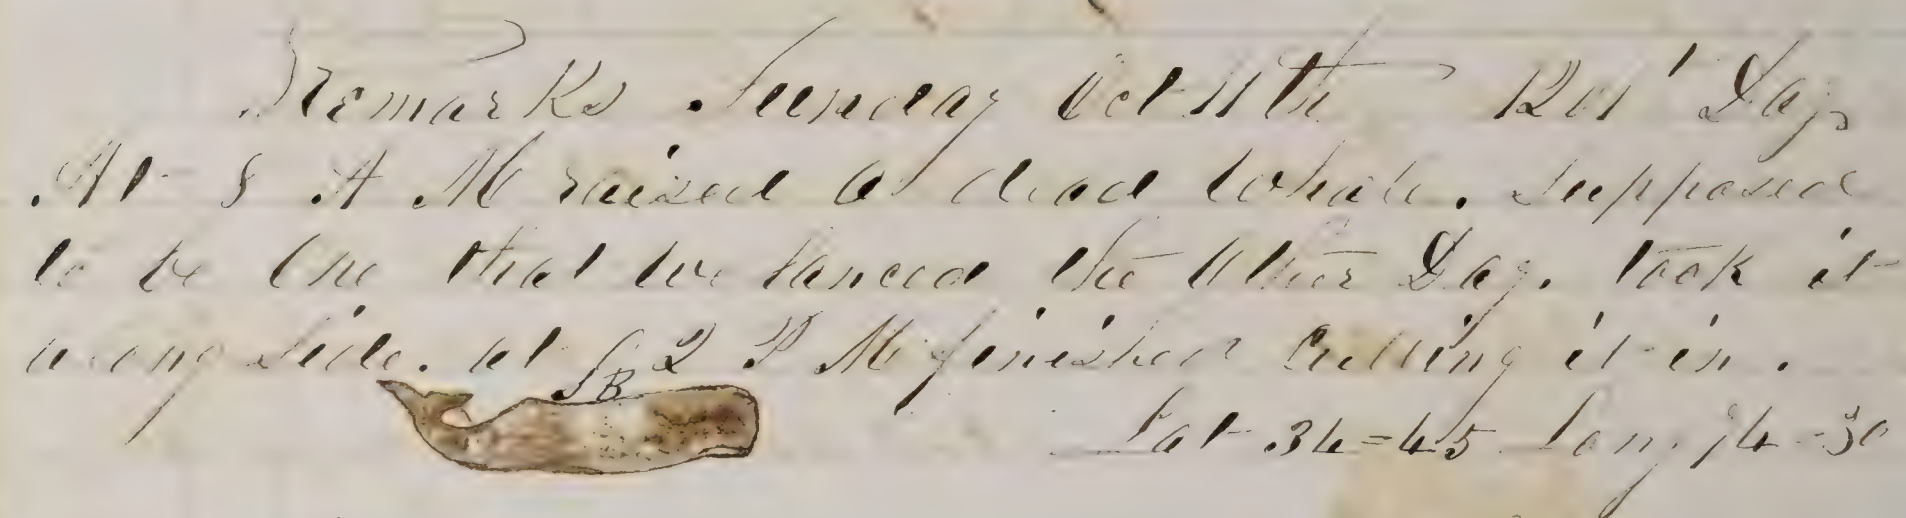 Remarks Sunday Oct 11th Day
At 8 A M raised a dead whale. Supposed
to be One that we lanced the Other Day. took it
along Side. at 2 P M finished Cutting it in.
S B
Lat 34=45 Long 74-30